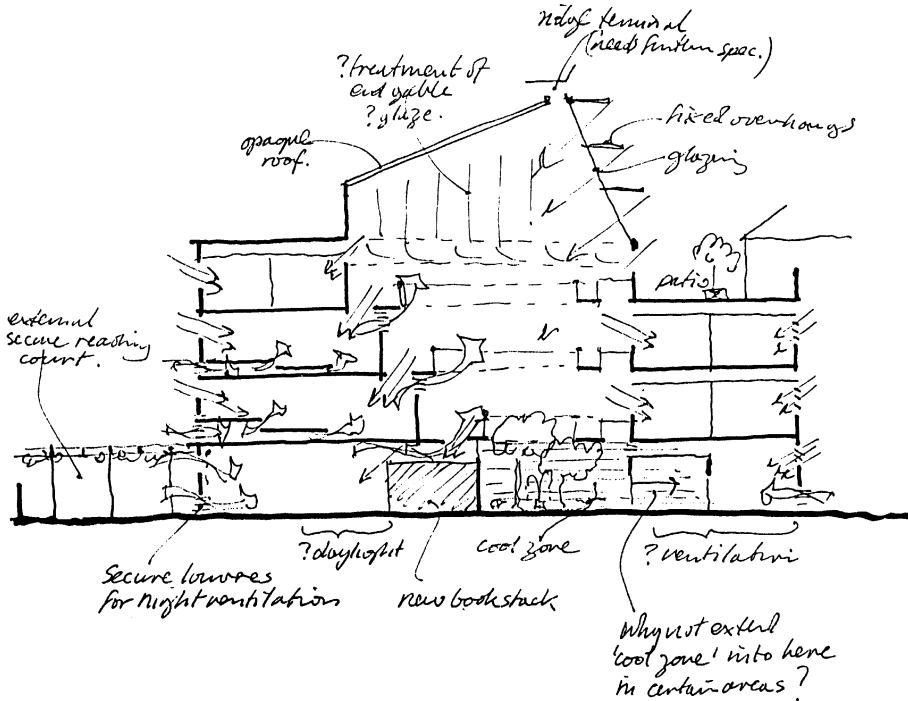 ridge terminal
(needs further spec.)
?treatment of
end gable
?glaze.
fixed overhangs
opaque
roof.
glazing
patio
external
secure reading
court.
?daylight
cool zone
?ventilation
Secure louvres
for night ventilation
new bookstack
why not extend
'cool zone' into here
in certain areas?